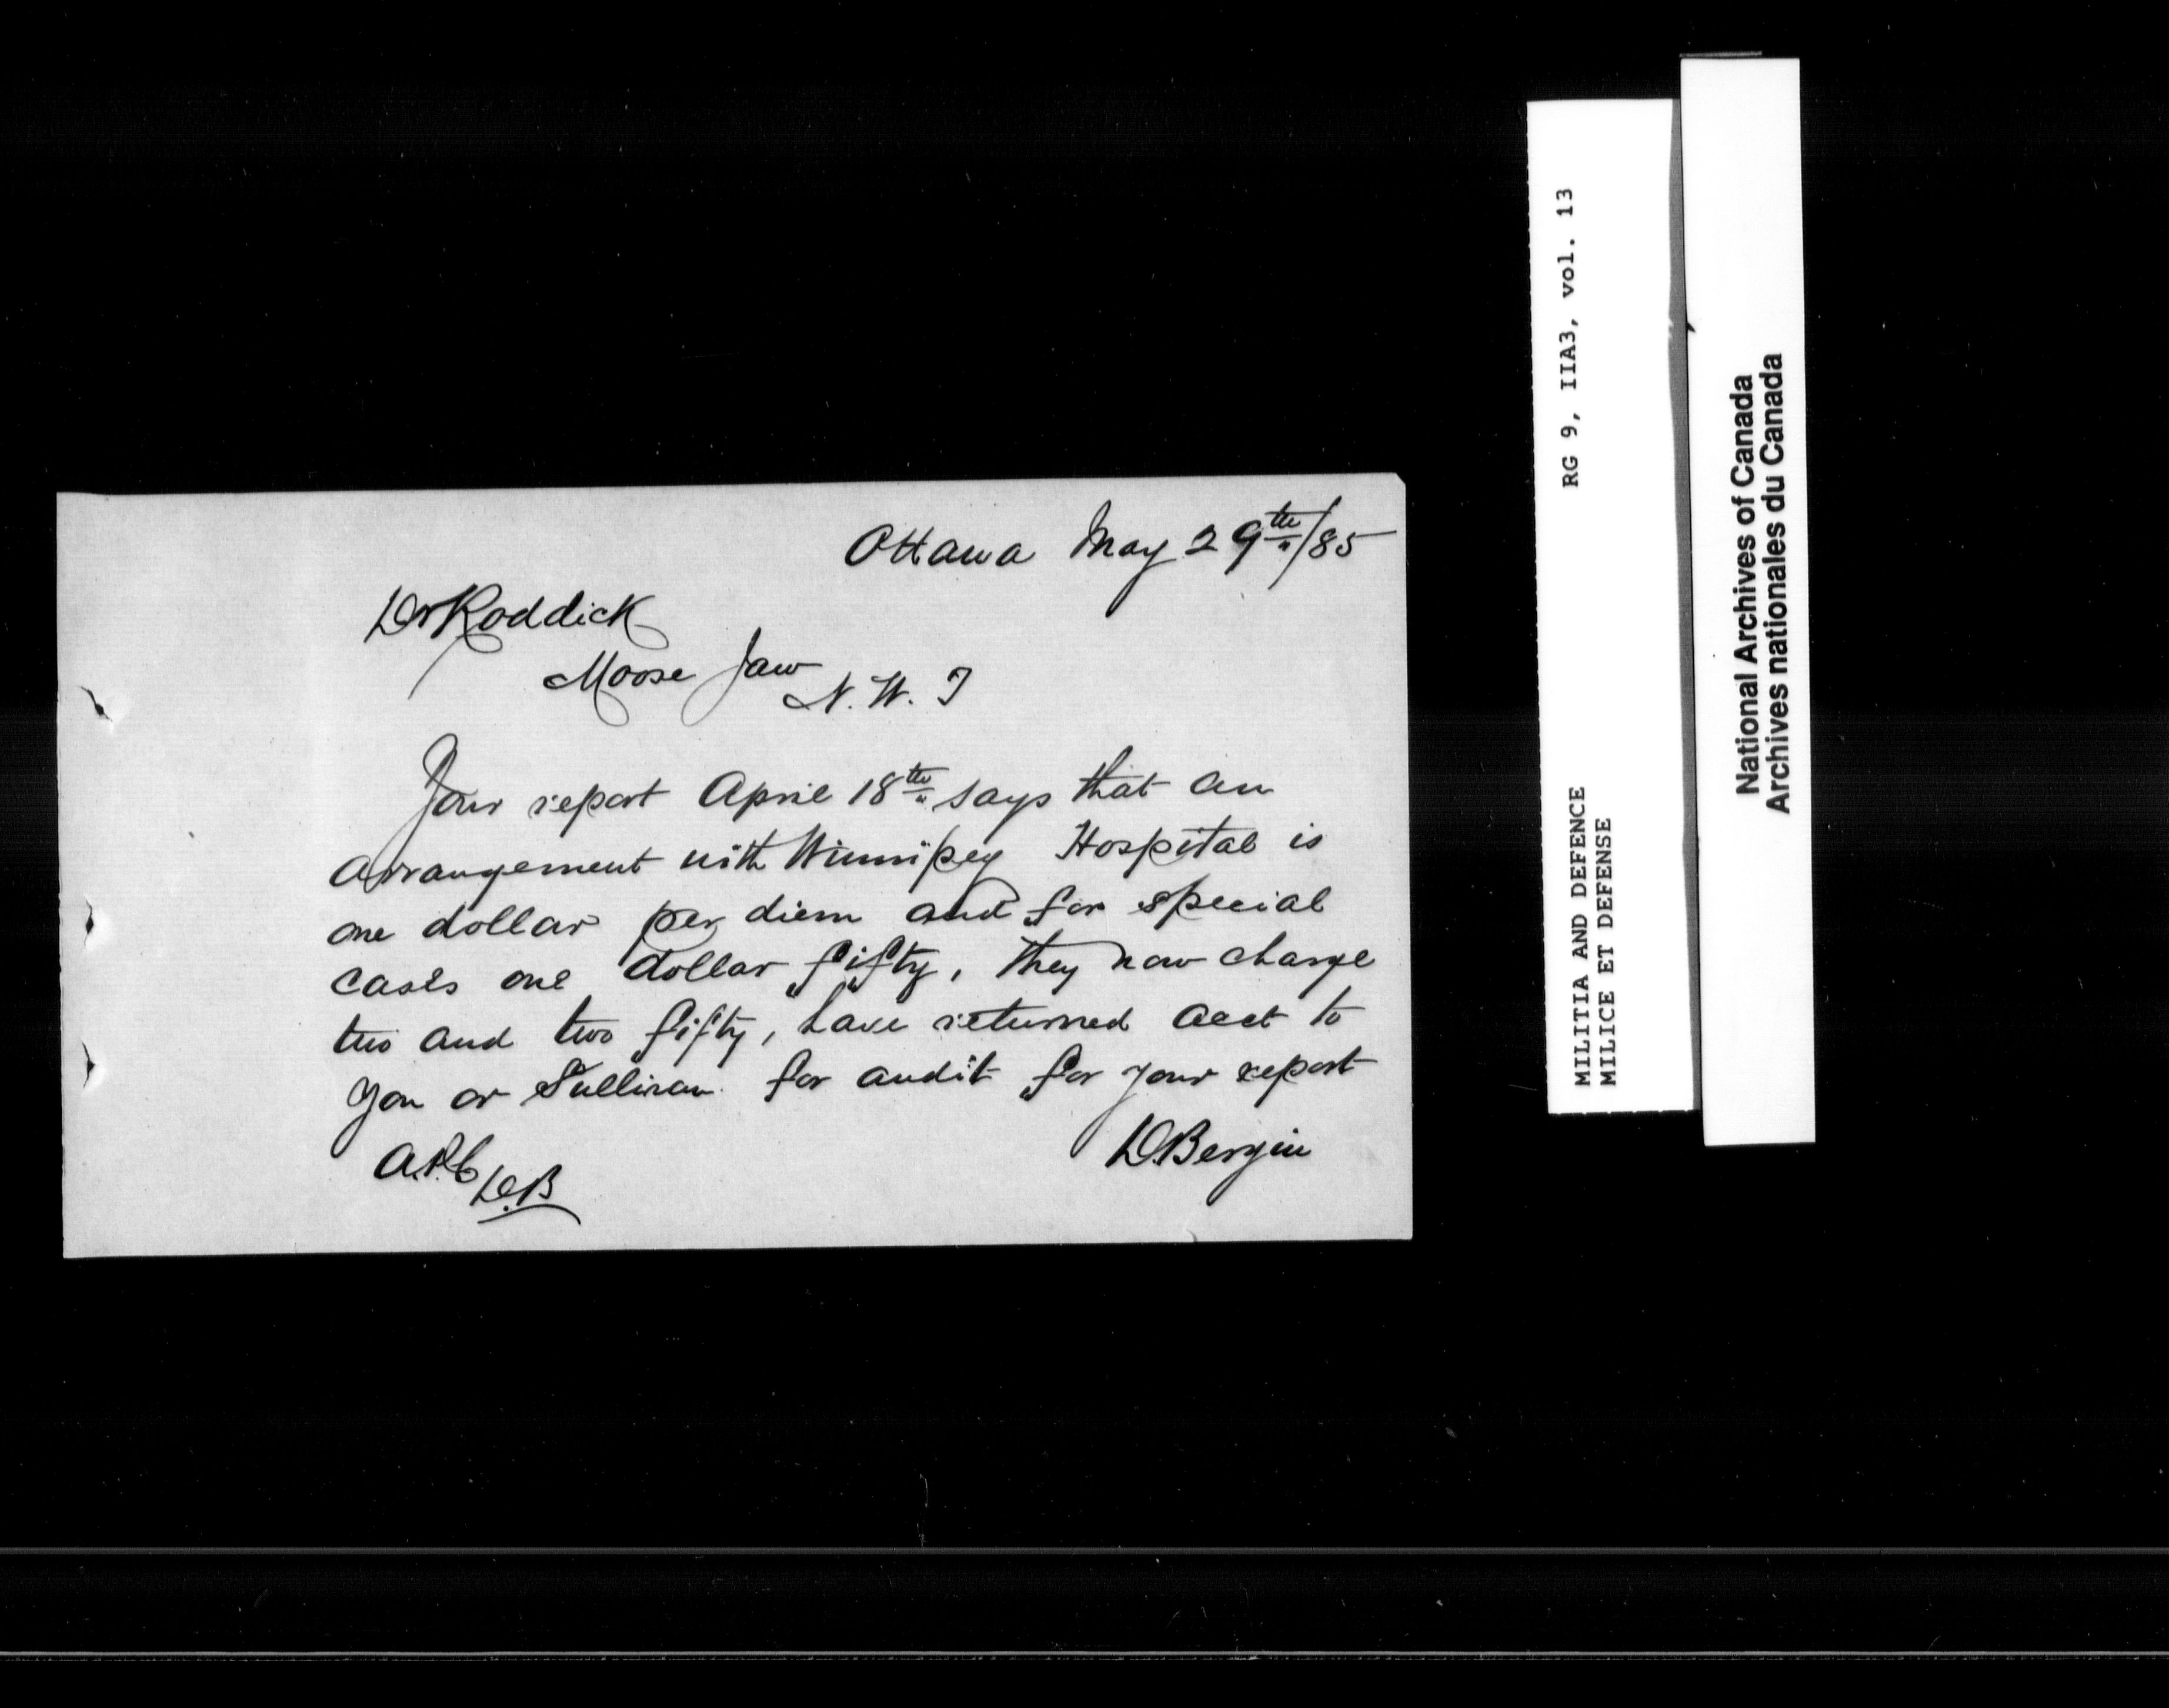 Ottawa May 29th/85
Dr Roddick
Moose Jaw
N. W. T
Your report April 18th says that an
arrangement with Winnipeg Hospital is
one dollar per diem and for special
cases one dollar fifty, they now charge
two and two fifty, have returned acct to
you or Sullivan for audit for your report
D. Bergin
D.B
RG 9, IIA3, vol. 13
MILITIA AND DEFENCE
MILICE ET DEFENSE
National Archives of Canada
Archives nationales du Canada